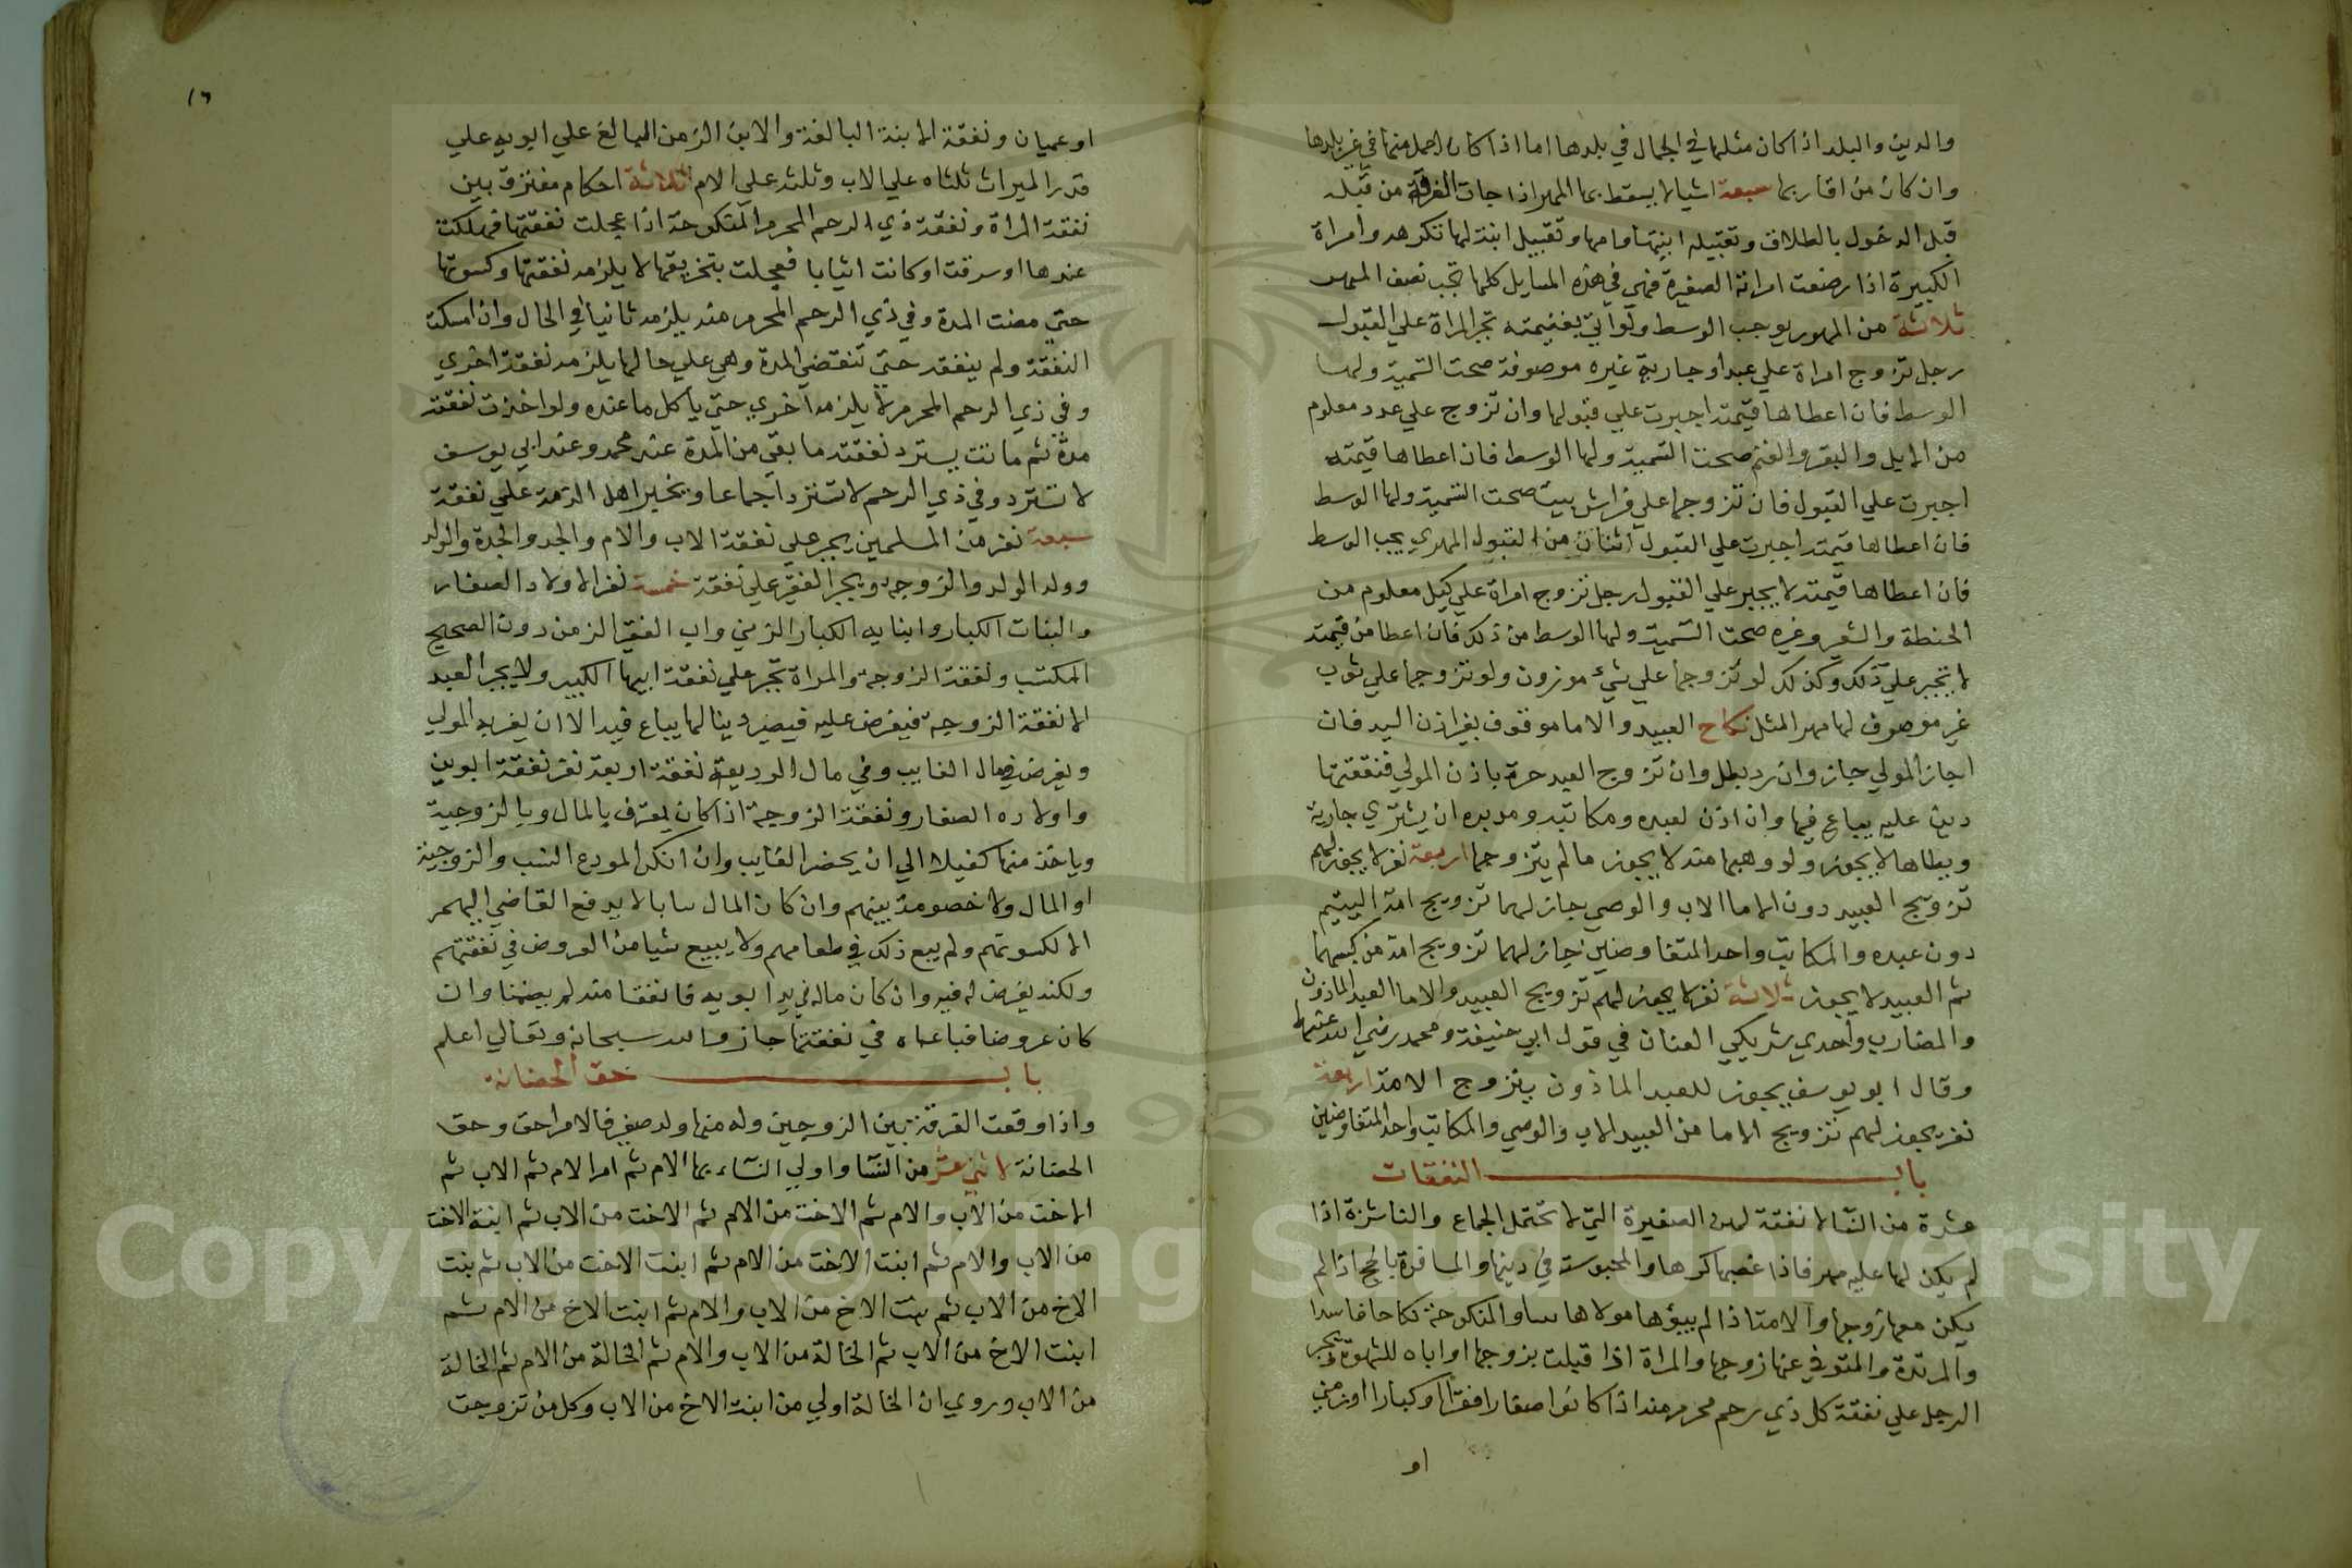 والدين والبلد اذا كان مثلها في الجمال في بلدها اما اذا كان اجمل منها في غير بلدها
وان كان من اقاربها سبعة اشيا لا يسقط بها المهر اذا جات الفرقة من قبله
قبل الدخول بالطلاق وتقبيله ابنتها وامها وتقبيل ابنة لها تكرهه وامراة
الكبيرة اذا رضعت امراته الصغيرة فهي في هذه المسايل كلها تجب نصف المهر
ثلاثة من المهور يوجب الوسط ولو اتي بقيمته تجبر المراة علي القبول
رجل تزوج امراة علي عبد او جارية غيره موصوفة صحت التسمية ولها
الوسط فان اعطاها قيمته اجبرت علي قبولها وان تزوج علي عدد معلوم
من الابل والبقر والغنم صحت التسمية ولها الوسط فان اعطاها قيمته
اجبرت علي القبول فان تزوجها علي فراش بيت صحت التسمية ولها الوسط
فان اعطاها قيمته اجبرت علي القبول اثنان من القبول المهري يجب الوسط
فان اعطاها قيمته لا يجبر علي القبول رجل تزوج امراة علي كيل معلوم من
الحنطة والشعير وغيره صحت التسمية ولها الوسط من ذلك فان اعطا من قيمته
لا تجبر علي ذلك وكذلك لو تزوجها علي شيء موزون ولو تزوجها علي ثوب
غير موصوف لها مهر المثل نكاح العبيد والاما موقوف بغير اذن السيد فان
اجاز المولي جاز وان رد بطل وان تزوج العبد حرة باذن المولي فنفقتها
دين عليه يباع فيها وان اذن لعبده ومكاتبه ومدبره ان يشتري جارية
ويطاها لا يجوز ولو وهبها منه لا يجوز مالم يتزوجها اربعة نفر لا يجوز لهم
تزويج العبيد دون الاما الاب والوصي جاز لهما تزويج امة اليتيم
دون عبده والمكاتب واحد المتفاوضين جاز لهما تزويج امة من كسبهما
ثم العبيد لا يجوز ثلاثة نفر لا يجوز لهم تزويج العبيد والاما العبد الماذون
والمضارب واحدي شريكي العنان في قول ابي حنيفة ومحمد رضي الله عنهما
وقال ابو يوسف يجوز للعبد الماذون يتزوج الامة اربعة
نفر يجوز لهم تزويج الاما من العبيد الاب والوصي والمكاتب واحد المتفاوضين
باب النفقات
عشرة من النسا لا نفقة لهن الصغيرة التي لا تحتمل الجماع والناشزة اذا
لم يكن لها عليه مهر فاذا غصبها كرها والمحبوسة في دينها والمسافرة بالحج اذا لم
يكن معها زوجها والامة اذا لم يبؤها مولاها والمنكوحة نكاحا فاسدا
والمرتدة والمتوفي عنها زوجها والمراة اذا قبلت بزوجها او اباه للشهوة ويجبر
الرجل علي نفقة كل ذي رحم محرم منه اذا كانوا صغارا فقرا او كبارا او زمني
او
١٦
او عميان ونفقة الابنة البالغة والابن الزمن البالغ علي ابويه علي
قدر الميراث ثلثاه علي الاب وثلثه علي الام ثلاثة احكام مفترق بين
نفقة المراة ونفقة ذي الرحم المحرم المنكوحة اذا عجلت نفقتها فهلكت
عندها او سرقت او كانت اثيابا فعجلت بتخريقها لا يلزمه نفقتها وكسوتها
حتي مضت المدة وفي ذي الرحم المحرم منه يلزمه ثانيا في الحال وان امسكت
النفقة ولم ينفقه حتي تنقضي المدة وهي علي حالها يلزمه نفقة اخري
وفي ذي الرحم المحرم لا يلزمه اخري حتي ياكل ما عنده ولو اخذت نفقته
مدة ثم ماتت يسترد نفقته ما بقي من المدة عند محمد وعند ابي يوسف
لا تسترد وفي ذي الرحم لا تسترد اجماعا ويجبر اهل الذمة علي نفقة
سبعة نفر من المسلمين يجبر علي نفقة الاب والام والجد والجدة والولد
وولد الولد والزوجة ويجبر الفقير علي نفقة خمسة نفر الاولاد الصغار
والبنات الكبار وابنايه الكبار الزمني واب الفقير الزمن دون الصحيح
المكتسب ونفقة الزوجة والمراة تجبر علي نفقة ابيها الكبير ولا يجبر العبد
الا نفقة الزوجة فيفرض عليه فيصير دينا لها يباع فيه الا ان يفديه المولي
ويفرض في مال الغايب وفي مال الوديعة نفقة اربعة نفر نفقة ابوين
واولاده الصغار ونفقة الزوجة اذا كان يعترف بالمال وبالزوجية
وياخذ منها كفيلا الي ان يحضر الغايب وان انكر المودع النسب والزوجية
او المال ولا خصومة بينهم وان كان المال لا يدفع القاضي اليهم
الا لكسوتهم ولم يبع ذلك في طعامهم ولا يبيع شيا من العروض في نفقتهم
ولكنه يفرض له فيه وان كان ماله في يد ابويه فانفقا منه لم يضمنا وان
كان عروضا فباعاه في نفقتهما جاز والله سبحانه وتعالي اعلم
باب حق الحضانة
واذا وقعت الفرقة بين الزوجين وله منها ولد صغير فالام احق وحق
الحضانة لاثني عشر من النسا واولي النساء بها الام ثم ام الام ثم الاب ثم
الاخت من الاب والام ثم الاخت من الام ثم الاخت من الاب ثم ابنة الاخت
من الاب والام ثم ابنت الاخت من الام ثم ابنت الاخت من الاب ثم بنت
الاخ من الاب ثم بنت الاخ من الاب والام ثم ابنت الاخ من الام ثم
ابنت الاخ من الاب ثم الخالة من الاب والام ثم الخالة من الام ثم الخالة
من الاب وروي ان الخالة اولي من ابنة الاخ من الاب وكل من تزوجت
Copyright © King Saud University